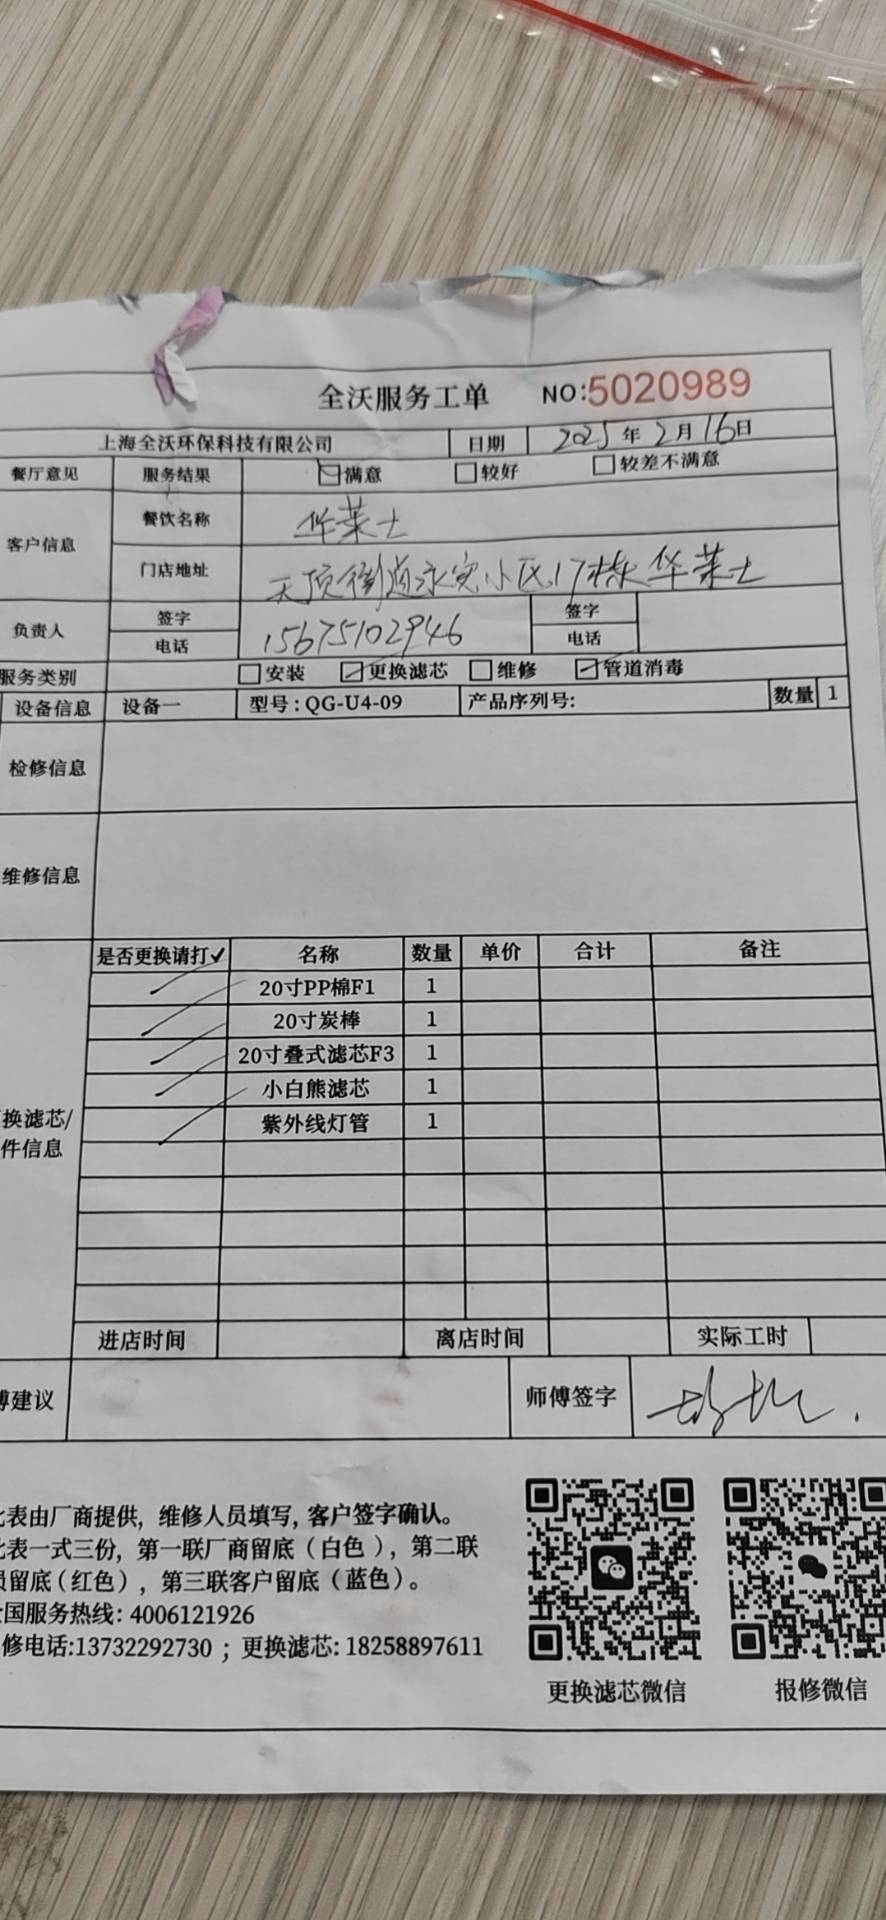 全沃服务工单 NO:5020989
上海全沃环保科技有限公司 日期 2025年2月16日
餐厅意见 服务结果 ☑满意 □较好 □较差不满意
客户信息 餐饮名称 华莱士
门店地址 天顶街道永安小区17栋华莱士
负责人 签字 签字
电话 15675102946 电话
服务类别 □安装 ☑更换滤芯 □维修 ☑管道消毒
设备信息 设备一 型号:QG-U4-09 产品序列号: 数量 1
检修信息
维修信息
是否更换请打✓ 名称 数量 单价 合计 备注
✓ 20寸PP棉F1 1
✓ 20寸炭棒 1
✓ 20寸叠式滤芯F3 1
✓ 小白熊滤芯 1
✓ 紫外线灯管 1
换滤芯/
件信息
进店时间 离店时间 实际工时
傅建议 师傅签字
此表由厂商提供, 维修人员填写, 客户签字确认。
此表一式三份, 第一联厂商留底（白色）, 第二联
员留底(红色）, 第三联客户留底（蓝色）。
全国服务热线: 4006121926
修电话:13732292730 ; 更换滤芯: 18258897611
更换滤芯微信 报修微信